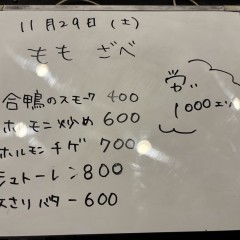 11月29日(土)
ももざべ
合鴨のスモーク 400
ホルモニ炒め 600
ホルモンチゲ 700
シュトーレン 800
あさりバター 600
学が
1000エン